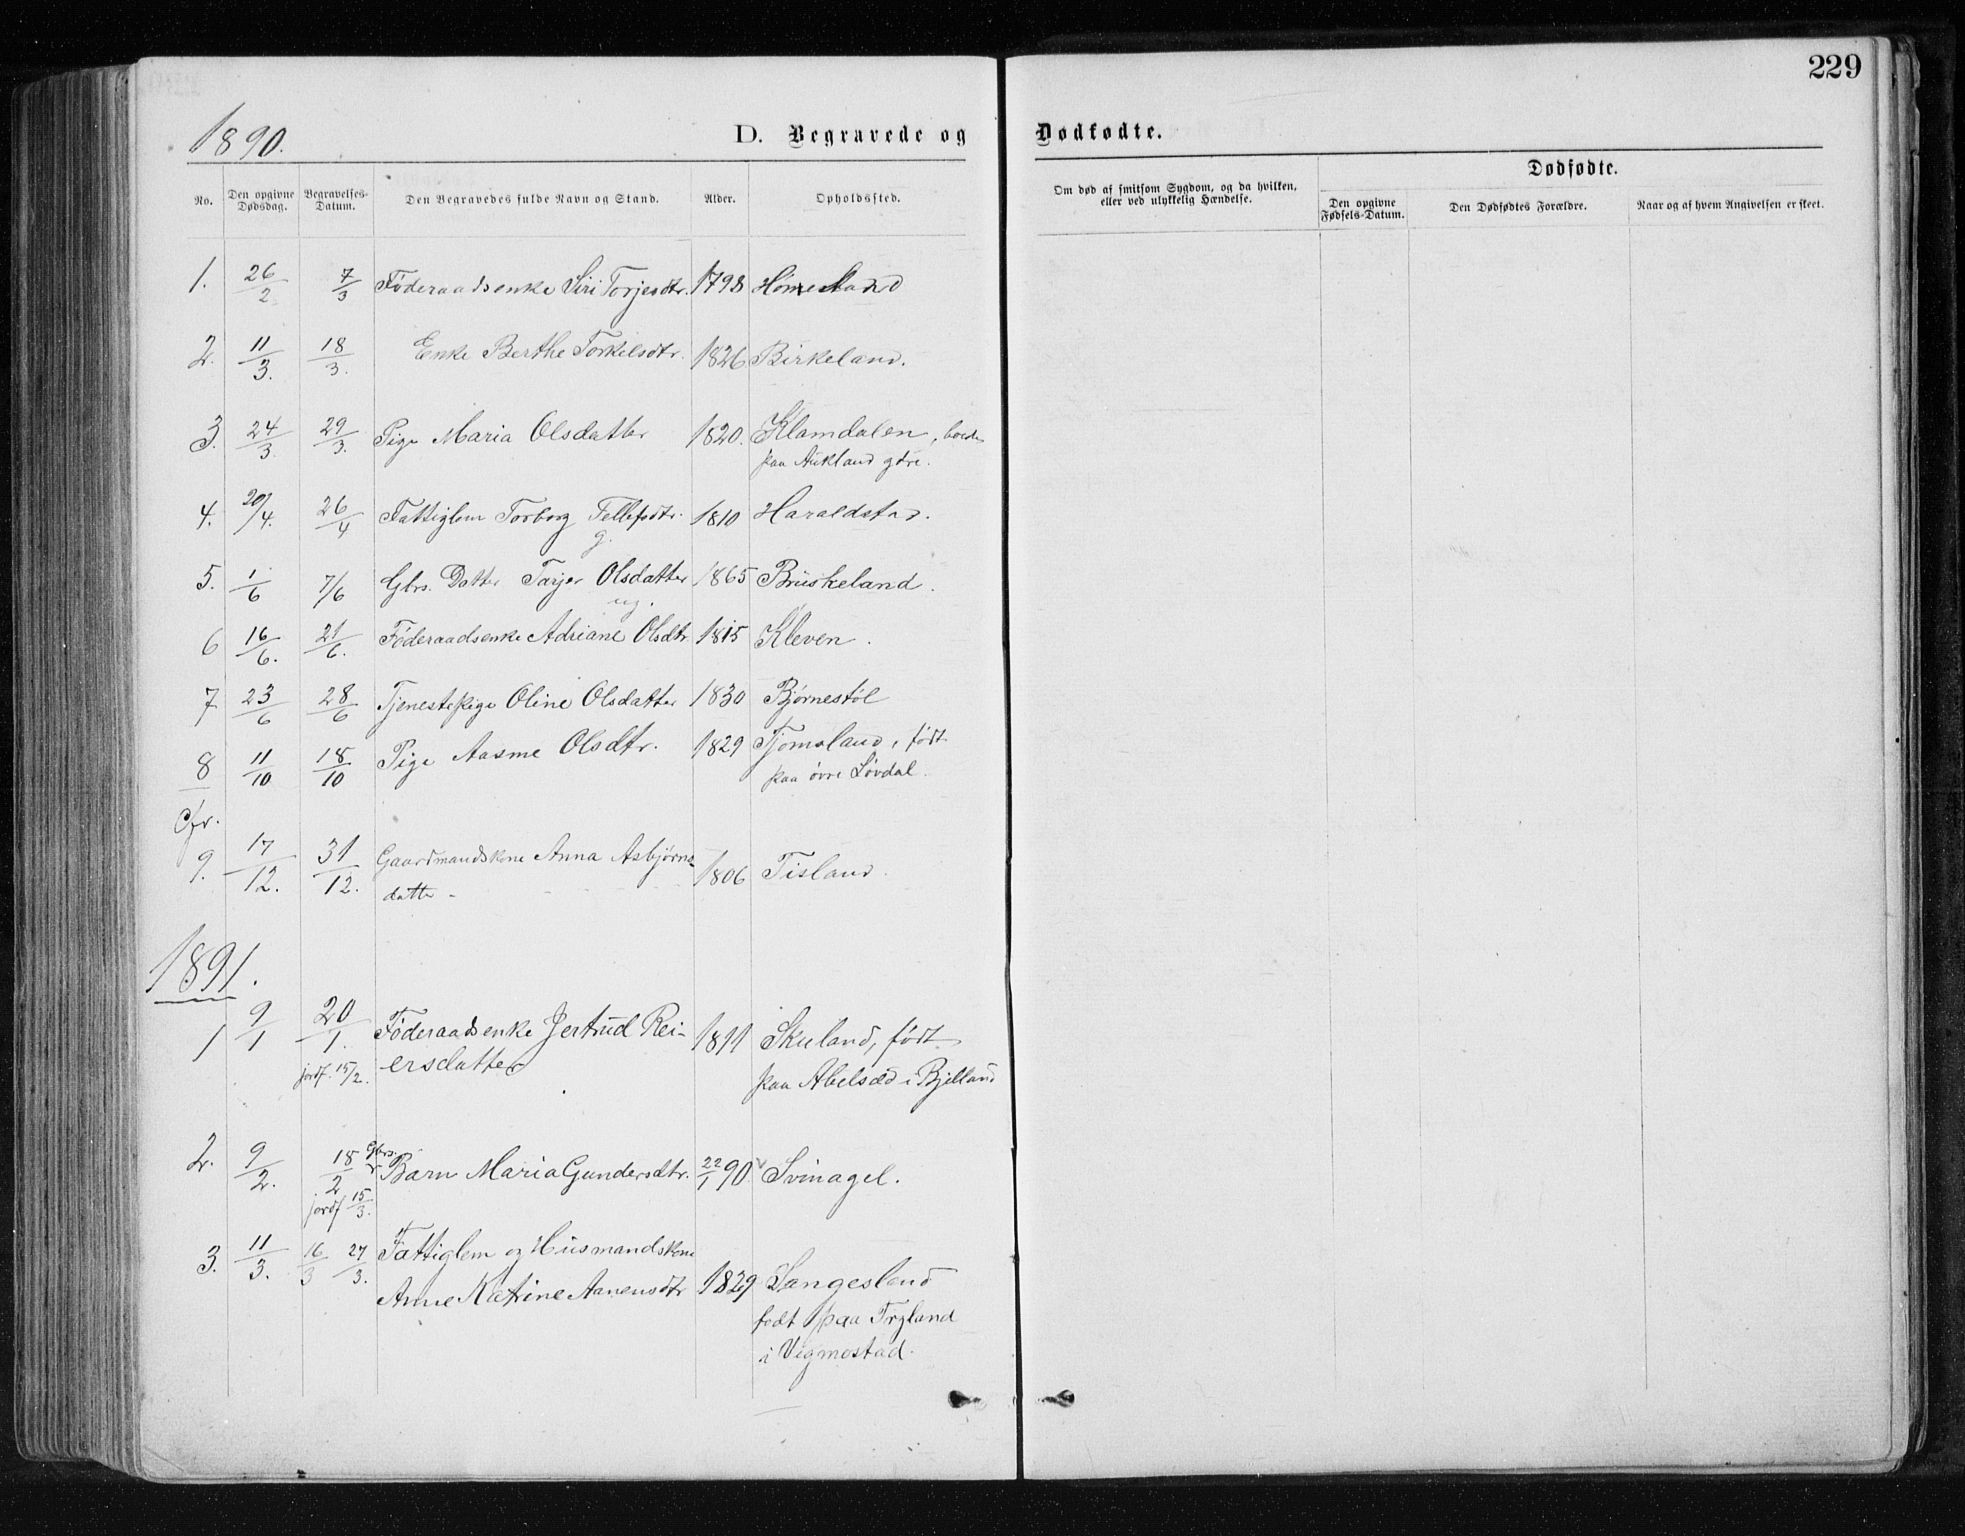 229
1890. D. Begravede og Dødfødte.
No. Den opgivne Dødsdag. Begravelses-Datum. Den Begravedes fulde Navn og Stand. Alder. Opholdssted. Om død af smitsom Sygdom, og da hvilken, eller ved ulykkelig Hændelse. Dødfødte.
Den opgivne Fødsels-Datum. Den Dødfødtes Forældre. Naar og af hvem Angivelsen er skeet.
1. 26/2 7/3 Föderaadsenke Siri Torjesdtr. 1798 Hömestad
2. 11/3. 18/3. Enke Berthe Torkelsdtr. 1826 Birkeland.
3. 24/3 29/3. Pige Maria Olsdatter 1820. Klamdalen, boede
paa Aukland gdre.
4. 20/4. 26/4 Fattiglem Torborg Tellefsdtr. 1810 Haraldstad.
g.
5. 1/6 7/6 Gbrs. Datter Tarjer Olsdatter 1865 Brüskeland.
ug.
6 16/6. 21/6. Föderaadsenke Adriane Olsdtr 1815 Kleven.
7 23/6 28/6 Tjenestepige Oline Olsdatter 1830 Bjørnestöl
8 11/10 18/10 Pige Aasme Olsdtr. 1829 Tjomsland, födt
paa övre Lövdal.
Cfr.
9. 17/12. 31/12. Gaardmandskone Anna Asbjørns-
datter - 1806 Tisland.
1891.
1 9/1 20/1. Föderaadsenke Jertrud Rei- 1811 Skuland, födt
jordf. 15/2. ersdatter paa Abelsæd i Bjelland
2. 9/2. 18/2 Gbrs. Barn Maria Gundersdtr. 22/1 90 Svinagel.
jordf 15/3.
3. 11/3. 16/3 27/3. Fattiglem og Husmandskone
Anne Katrine Aanensdtr 1829 Langesland
födt paa Tryland
i Vigmostad.